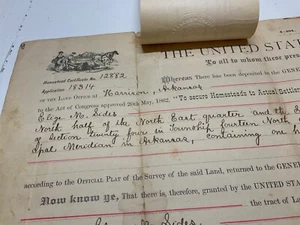 THE UNITED STA
To all to whom these pre
Homestead Certificate No. 12882
Application 18314
Whereas There has been deposited in the GENE
OF THE LAND OFFICE AT Harrison, Arkansas
to the Act of Congress approved 20th May, 1862, "To secure Homesteads to Actual Settler
Elige M. Sides
North half of the North East quarter and the
of Section twenty four in Township fourteen North of
ipal Meridian in Arkansas, containing one h
according to the OFFICIAL PLAT of the Survey of the said Land, returned to the GENERA
Now know ye, That there is, therefore, granted by the UNITED STA
the tract of La
Sides